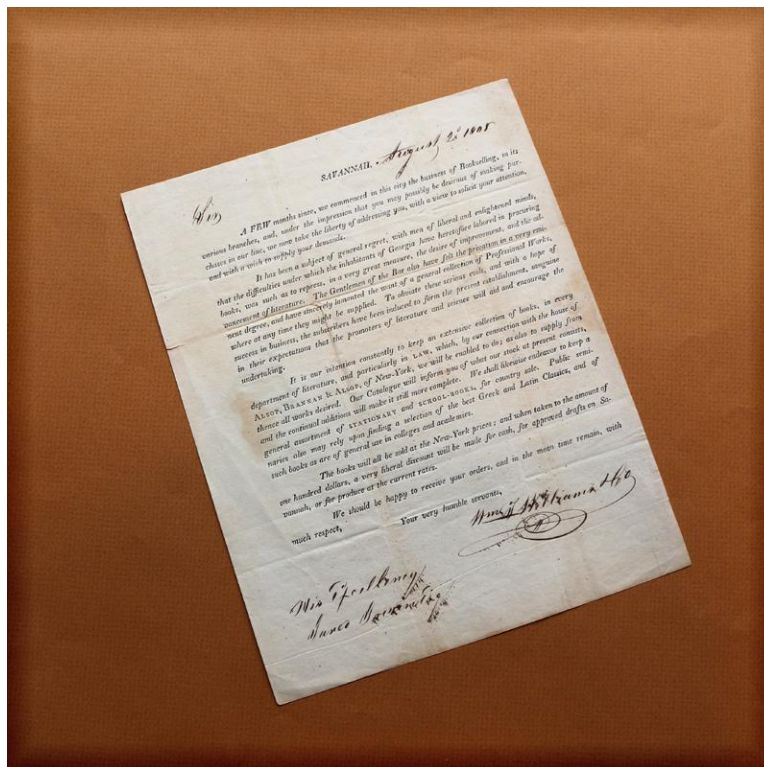 SAVANNAH, August 2d 1808
Sir,
A FEW months since, we commenced in this city the business of Bookselling, in its
various branches, and, under the impression that you may possibly be desirous of making pur-
chases in our line, we now take the liberty of addressing you, with a view to solicit your attention,
and with a wish to supply your demands.
It has been a subject of general regret, with men of liberal and enlightened minds,
that the difficulties under which the inhabitants of Georgia have heretofore labored in procuring
books, was such as to repress, in a very great measure, the desire of improvement, and the ad-
vancement of literature. The Gentlemen of the Bar also have felt the privation in a very emi-
nent degree, and have sincerely lamented the want of a general collection of Professional Works,
where at any time they might be supplied. To obviate these serious evils, and with a hope of
success in business, the subscribers have been induced to form the present establishment, sanguine
in their expectations that the promoters of literature and science will aid and encourage the
undertaking.
It is our intention constantly to keep an extensive collection of books, in every
department of literature, and particularly in LAW, which, by our connection with the house of
ALSOP, BRANNAN & ALSOP, of New-York, we will be enabled to do; as also to supply from
thence all works desired. Our Catalogue will inform you of what our stock at present consists,
and the continual additions will make it still more complete. We shall likewise endeavor to keep a
general assortment of STATIONARY and SCHOOL-BOOKS, for country sale. Public semi-
naries also may rely upon finding a selection of the best Greek and Latin Classics, and of
such books as are of general use in colleges and academies.
The books will all be sold at the New-York prices; and when taken to the amount of
one hundred dollars, a very liberal discount will be made for cash, for approved drafts on Sa-
vannah, or for produce at the current rates.
We should be happy to receive your orders, and in the mean time remain, with
much respect,
Your very humble servants,
Wm. T. Williams & Co
His Excellency
Jared